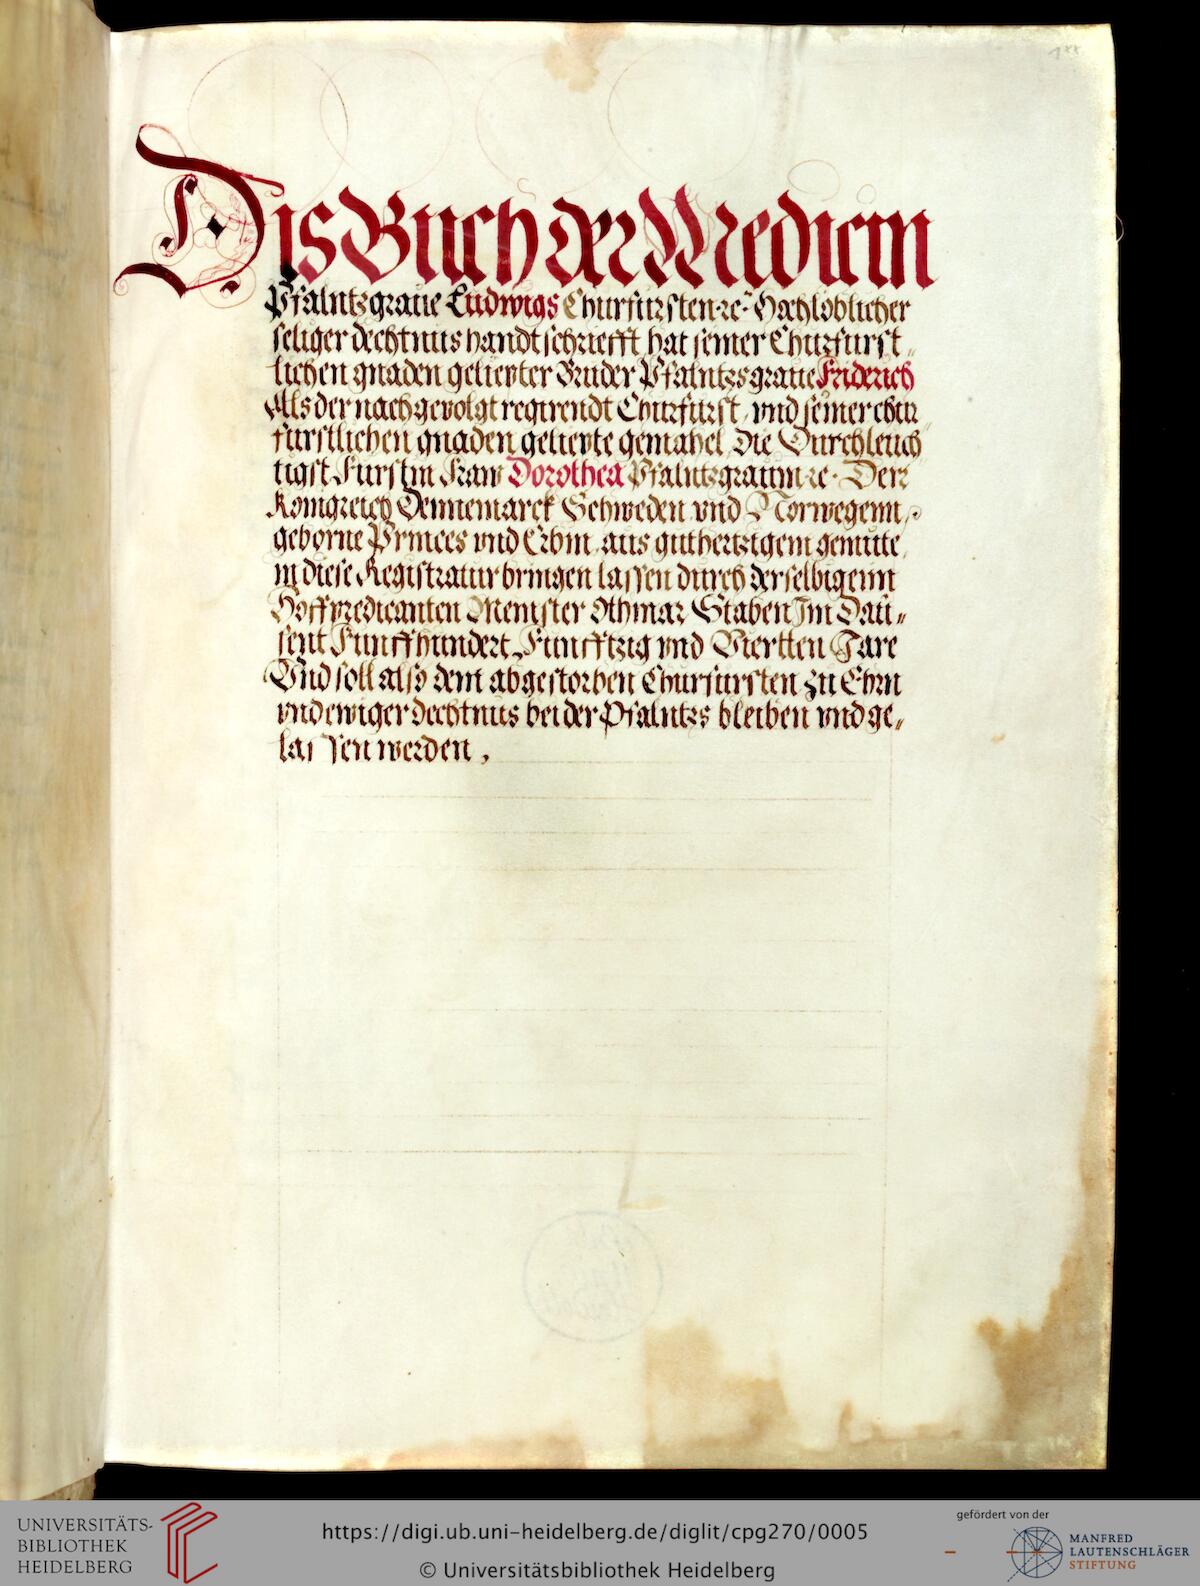 Dis Buch der Medicin
Pfalntzgraue Ludwigs Churfursten ꝛc Hochloblicher
seliger dechtnus handtschriefft hat seiner Churfurst„
lichen gnaden geliepter Bruder Pfalntzsgraue Friderich
Als der nachgevolgt regirendt Churfurst, vnd seiner chur„
furstlichen gnaden geliepte gemahel, Die Durchleuch„
tigst Furstin Fraw Dorothea Pfalntzgrauin ꝛc. Derr
Konigreich Dennemarck Schweden vnd Norwegenn,
geborne Princes vnd Erbin, aus guthertzigem gemute,
in diese Registratur bringen lassen durch derselbigenn
Hoffpredicanten Meinster Othmar Staben Im Dau„
sent Funffhundert, Funfftzig vnd Viertten Jare
Vnd soll also dem abgestorben Churfursten zu Ehrn
vnd ewiger dechtnus bei der Pfalntzs bleiben vnd ge„
lassen werden,
188
UNIVERSITÄTS-
BIBLIOTHEK
HEIDELBERG
https://digi.ub.uni-heidelberg.de/diglit/cpg270/0005
© Universitätsbibliothek Heidelberg
gefördert von der
MANFRED
LAUTENSCHLÄGER
STIFTUNG